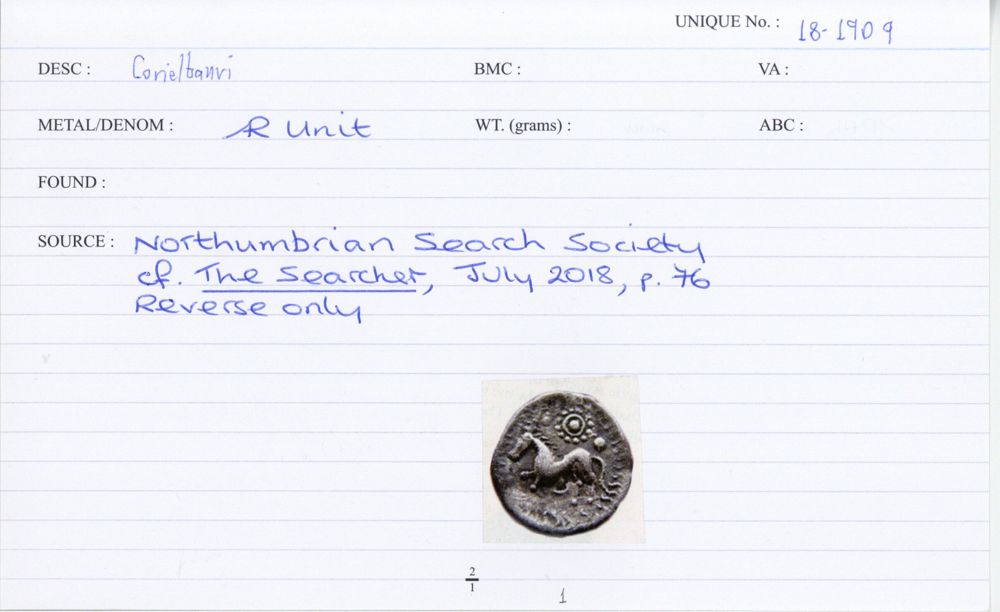 UNIQUE No. : 18-1909
DESC : Corieltauvi BMC : VA :
METAL/DENOM : AR Unit WT. (grams) : ABC :
FOUND :
SOURCE : Northumbrian Search Society
cf. The Searcher, July 2018, p. 76
Reverse only
2
1
1